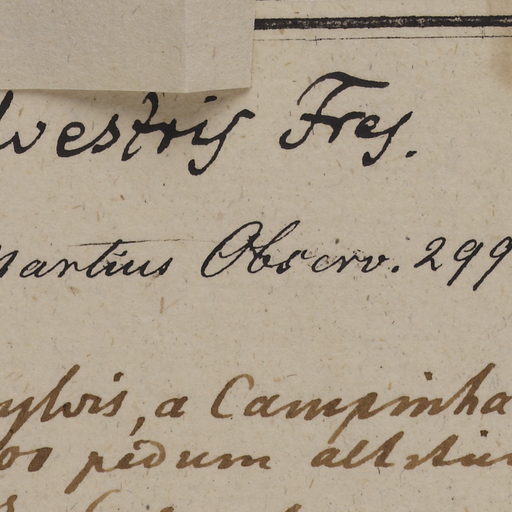 lvestris Fres.
Martius Observ. 299
sylvis, a Campinha
00 pedum altitu